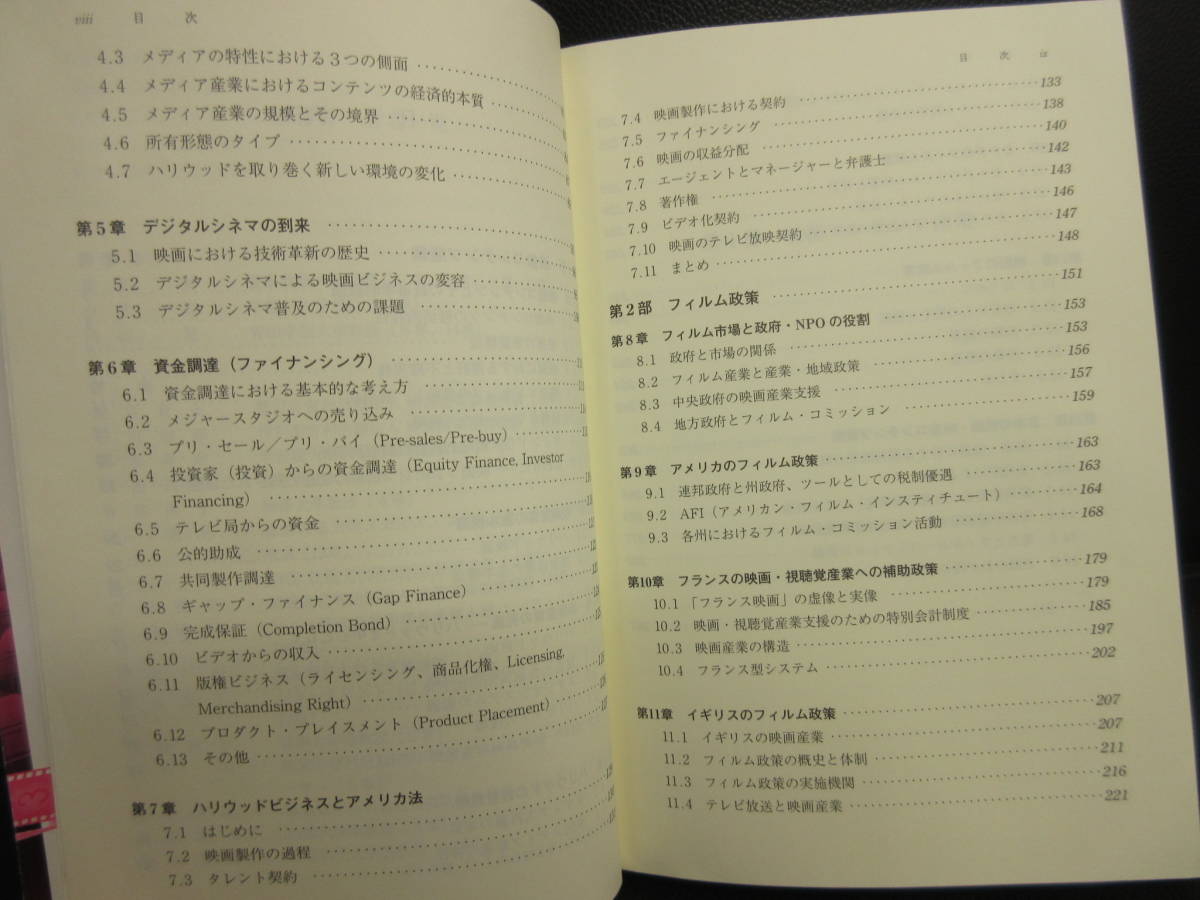 viii 目 次
4.3 メディアの特性における3つの側面
4.4 メディア産業におけるコンテンツの経済的本質
4.5 メディア産業の規模とその境界
4.6 所有形態のタイプ
4.7 ハリウッドを取り巻く新しい環境の変化
第5章 デジタルシネマの到来
5.1 映画における技術革新の歴史
5.2 デジタルシネマによる映画ビジネスの変容
5.3 デジタルシネマ普及のための課題
第6章 資金調達（ファイナンシング）
6.1 資金調達における基本的な考え方
6.2 メジャースタジオへの売り込み
6.3 プリ・セール／プリ・バイ（Pre-sales/Pre-buy）
6.4 投資家（投資）からの資金調達（Equity Finance, Investor
Financing）
6.5 テレビ局からの資金
6.6 公的助成
6.7 共同製作調達
6.8 ギャップ・ファイナンス（Gap Finance）
6.9 完成保証（Completion Bond）
6.10 ビデオからの収入
6.11 版権ビジネス（ライセンシング、商品化権、Licensing,
Merchandising Right）
6.12 プロダクト・プレイスメント（Product Placement）
6.13 その他
第7章 ハリウッドビジネスとアメリカ法
7.1 はじめに
7.2 映画製作の過程
7.3 タレント契約
目 次 ix
7.4 映画製作における契約 133
7.5 ファイナンシング 138
7.6 映画の収益分配 140
7.7 エージェントとマネージャーと弁護士 142
7.8 著作権 143
7.9 ビデオ化契約 146
7.10 映画のテレビ放映契約 147
7.11 まとめ 148
第2部 フィルム政策 151
第8章 フィルム市場と政府・NPOの役割 153
8.1 政府と市場の関係 153
8.2 フィルム産業と産業・地域政策 156
8.3 中央政府の映画産業支援 157
8.4 地方政府とフィルム・コミッション 159
第9章 アメリカのフィルム政策 163
9.1 連邦政府と州政府、ツールとしての税制優遇 163
9.2 AFI（アメリカン・フィルム・インスティチュート） 164
9.3 各州におけるフィルム・コミッション活動 168
第10章 フランスの映画・視聴覚産業への補助政策 179
10.1 「フランス映画」の虚像と実像 179
10.2 映画・視聴覚産業支援のための特別会計制度 185
10.3 映画産業の構造 197
10.4 フランス型システム 202
第11章 イギリスのフィルム政策 207
11.1 イギリスの映画産業 207
11.2 フィルム政策の概史と体制 211
11.3 フィルム政策の実施機関 216
11.4 テレビ放送と映画産業 221